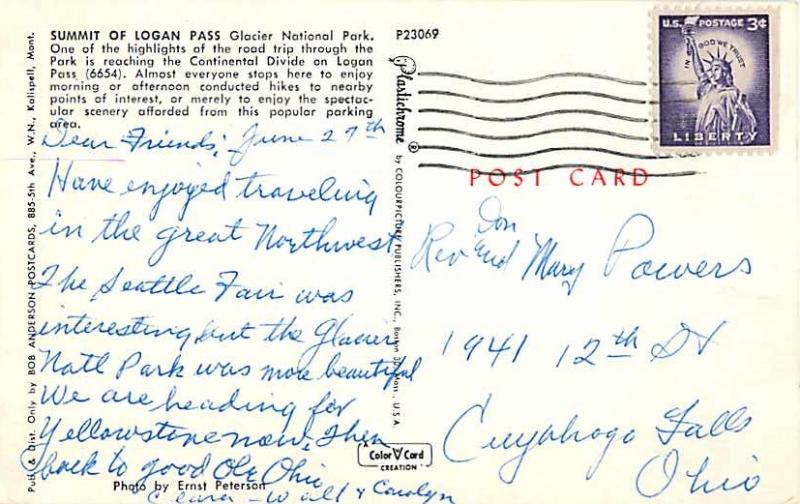 SUMMIT OF LOGAN PASS Glacier National Park.
One of the highlights of the road trip through the
Park is reaching the Continental Divide on Logan
Pass (6654). Almost everyone stops here to enjoy
morning or afternoon conducted hikes to nearby
points of interest, or merely to enjoy the spectac-
ular scenery afforded from this popular parking
area.
Dear Friends, June 27th
Have enjoyed traveling
in the great Northwest
The Seattle Fair was
interesting but the Glacier
Natl Park was more beautiful
We are heading for
Yellowstone now, then
back to good Ole Ohio
Walt & Carolyn
Photo by Ernst Peterson
Pub. & Dist. Only by BOB ANDERSON POSTCARDS, 885-5th Ave., W.N., Kalispell, Mont.
P23069
Plastichrome ® by COLOURPICTURE PUBLISHERS, INC., Boston 30, Mass., U.S.A.
Color V Card
CREATION
U.S. POSTAGE 3¢
IN GOD WE TRUST
LIBERTY
POST CARD
Don
Rev and Mary Powers
1941 12th St
Cuyahoga Falls
Ohio